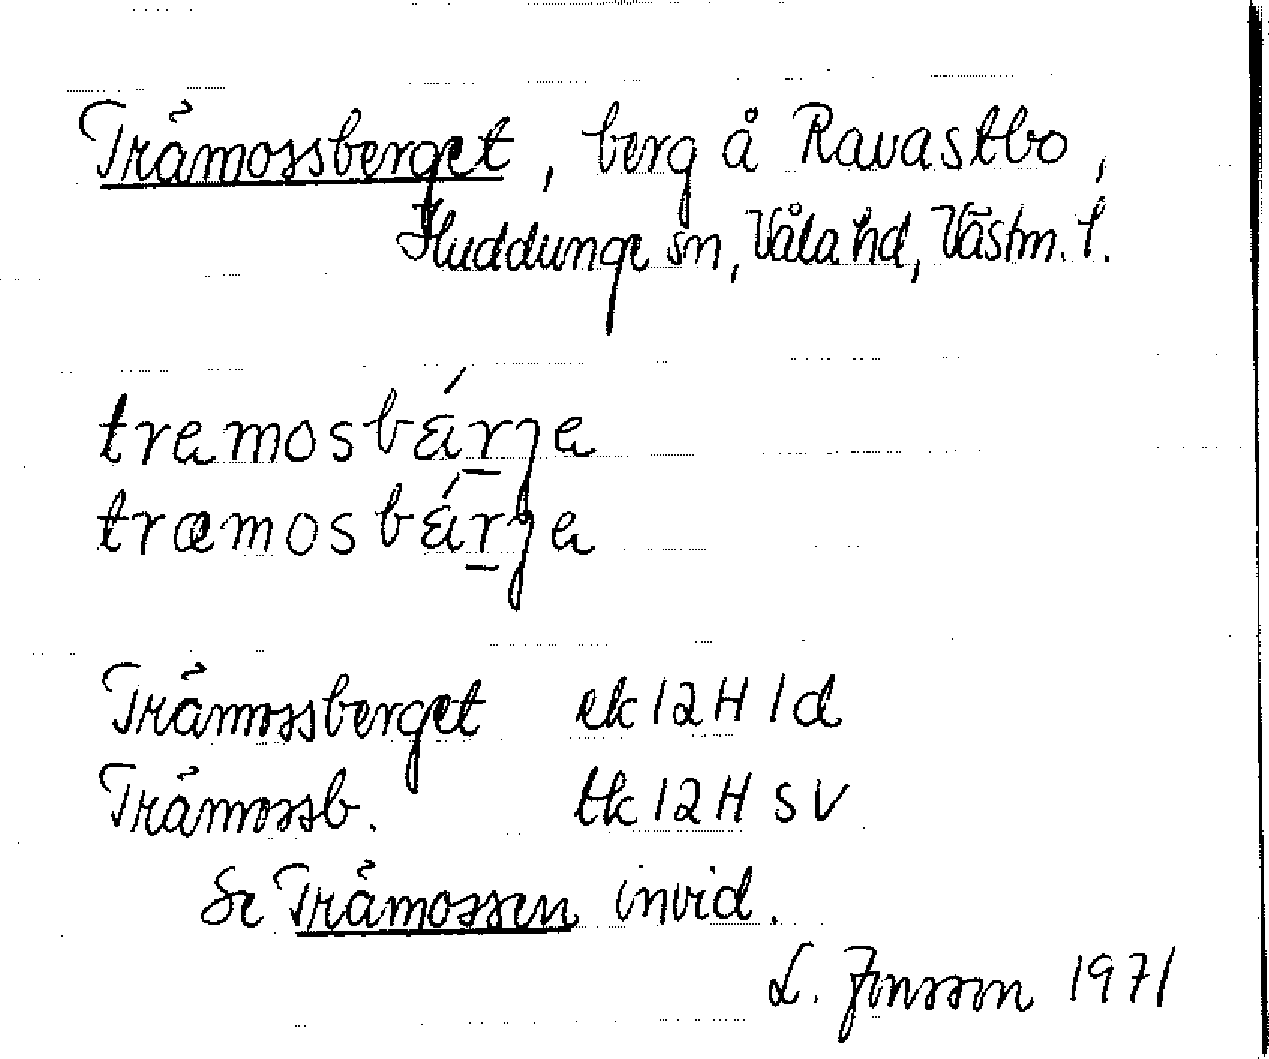 Tråmossberget, berg å Ravastbo,
Huddunge sn, Våla hd, Västm. l.
tremosbä́rje
træmosbä́rje
Tråmossberget ek 12H 1d
Tråmossb. tk 12H SV
Se Tråmossen invid.
L. Jonsson 1971